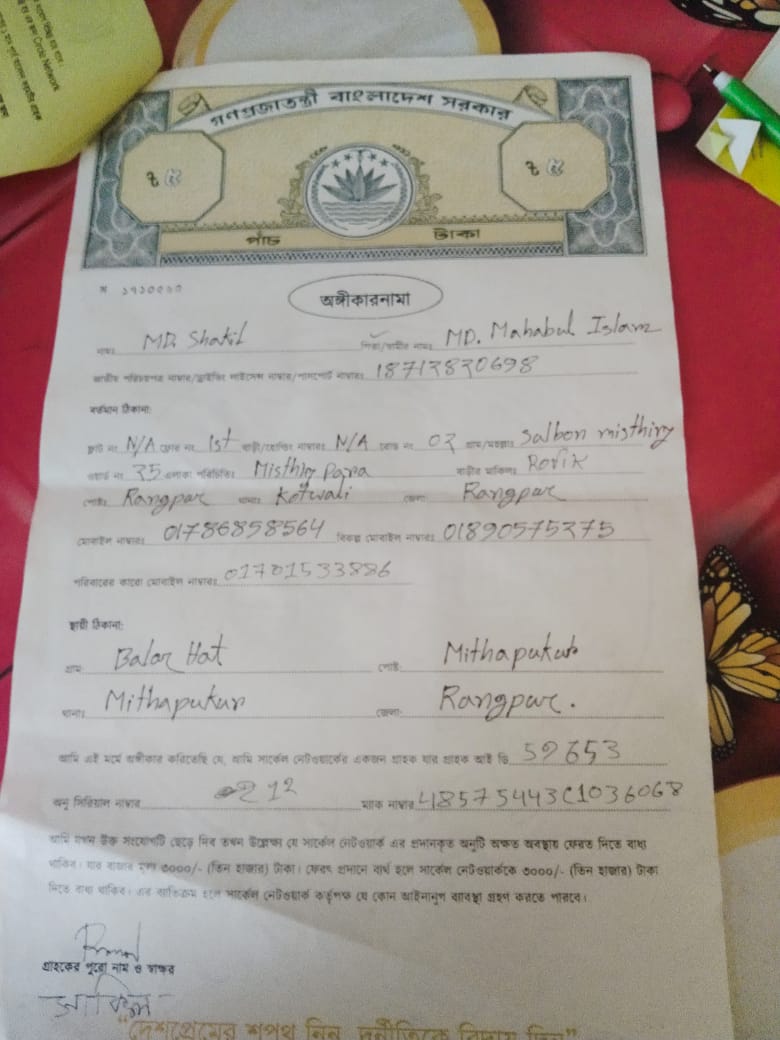 Circle Network
গণপ্রজাতন্ত্রী বাংলাদেশ সরকার
৳ ৫ ৳ ৫
পাঁচ টাকা
অঙ্গীকারনামা
নামঃ MD. Shakil পিতা/স্বামীর নামঃ MD. Mahabul Islam
জাতীয় পরিচয়পত্র নাম্বার/ড্রাইভিং লাইসেন্স নাম্বার/পাসপোর্ট নাম্বারঃ 18712820698
বর্তমান ঠিকানা:
ফ্লাট নং N/A ফ্লোর নং 1st বাড়ী/হোল্ডিং নাম্বারঃ N/A রোড নং 02 গ্রাম/মহল্লাঃ Salbon misthiry
ওয়ার্ড নং 25 এলাকা পরিচিতিঃ Misthiry Para বাড়ীর মালিকঃ Rofik
পোষ্টঃ Rangpur থানাঃ Kotwali জেলা: Rangpur
মোবাইল নাম্বারঃ 01786858564 বিকল্প মোবাইল নাম্বারঃ 01890575275
পরিবারের কারো মোবাইল নাম্বারঃ 01701533886
স্থায়ী ঠিকানা:
গ্রামঃ Balar Hat পোষ্ট: Mithapukur
থানাঃ Mithapukur জেলা: Rangpur.
আমি এই মর্মে অঙ্গীকার করিতেছি যে, আমি সার্কেল নেটওয়ার্কের একজন গ্রাহক যার গ্রাহক আই ডি 52653
অনু সিরিয়াল নাম্বার 212 ম্যাক নাম্বার 48575443C1036068
আমি যখন উক্ত সংযোগটি ছেড়ে দিব তখন উল্লেক্ষ্য যে সার্কেল নেটওয়ার্ক এর প্রদানকৃত অনুটি অক্ষত অবস্থায় ফেরত দিতে বাধ্য
থাকিব। যার বাজার মূল্য ৩০০০/- (তিন হাজার) টাকা। ফেরৎ প্রদানে ব্যর্থ হলে সার্কেল নেটওয়ার্ককে ৩০০০/- (তিন হাজার) টাকা
দিতে বাধ্য থাকিব। এর ব্যতিক্রম হলে সার্কেল নেটওয়ার্ক কর্তৃপক্ষ যে কোন আইনানুগ ব্যাবস্থা গ্রহণ করতে পারবে।
গ্রাহকের পুরো নাম ও স্বাক্ষর
সাকিল
"দেশপ্রেমের শপথ নিন, দুর্নীতিকে বিদায় দিন"